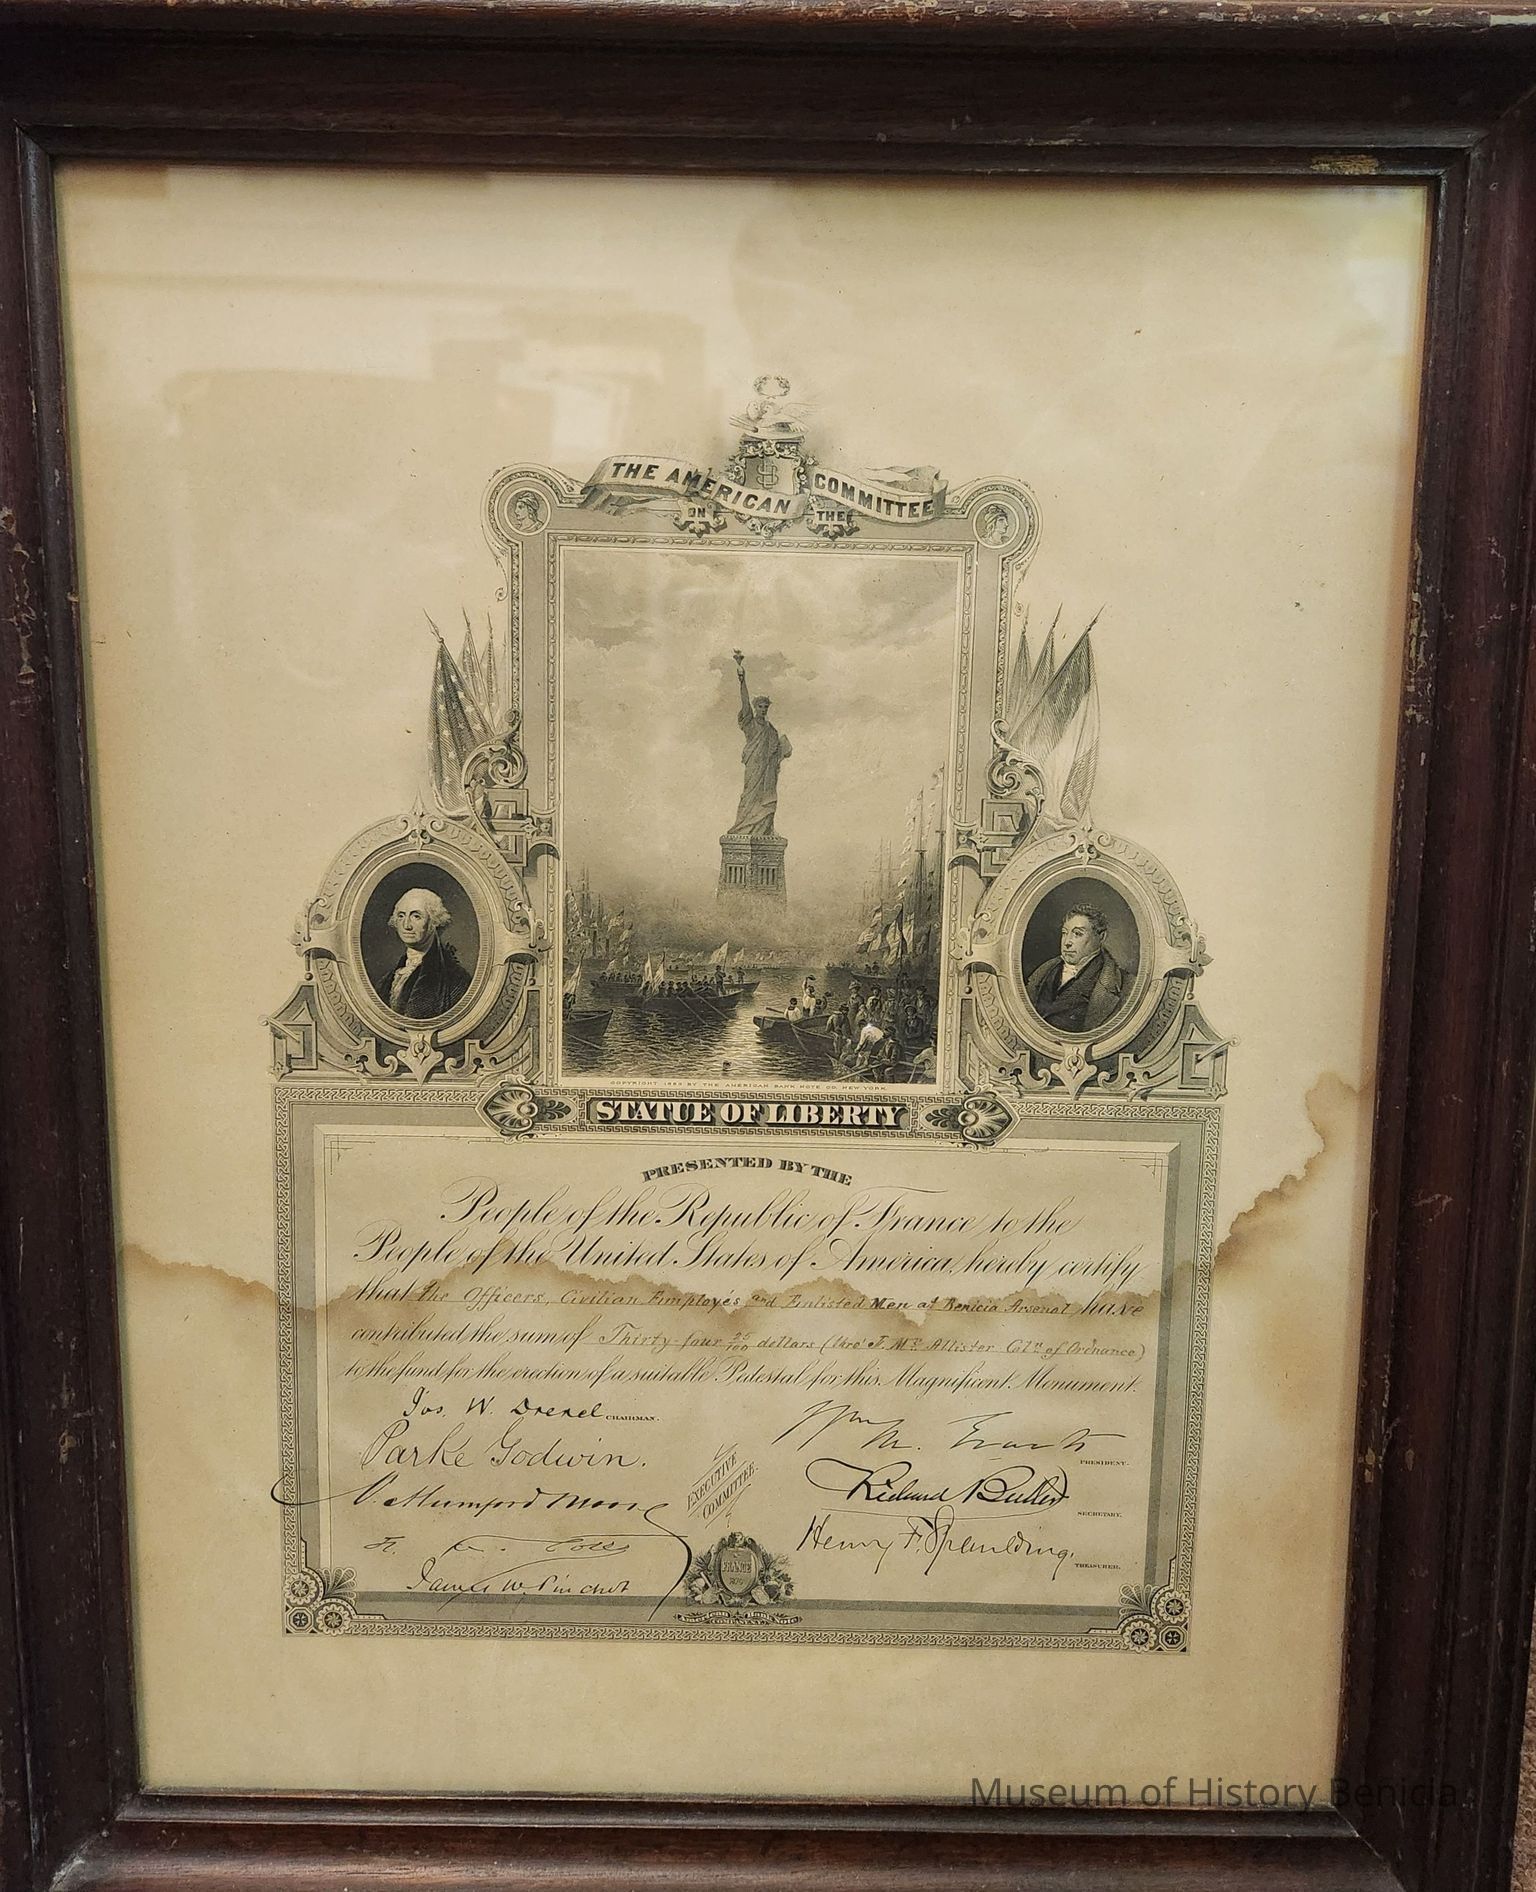 THE AMERICAN COMMITTEE
ON THE
COPYRIGHT 1883 BY THE AMERICAN BANK NOTE CO. NEW YORK
STATUE OF LIBERTY
PRESENTED BY THE
People of the Republic of France to the
People of the United States of America, hereby certify
that the Officers, Civilian Employés and Enlisted Men at Benicia Arsenal, have
contributed the sum of Thirty-four 25/100 dollars (thro' J. Mc Allister Col. of Ordnance)
to the fund for the erection of a suitable Pedestal for this Magnificent Monument.
Jos. W. Drexel CHAIRMAN.
Parke Godwin.
V. Mumford Moore
James W. Pinchot
EXECUTIVE
COMMITTEE.
Wm M. Evarts
PRESIDENT.
Richard Butler
SECRETARY.
Henry F. Spaulding,
TREASURER.
American Bank Note
Museum of History Benicia